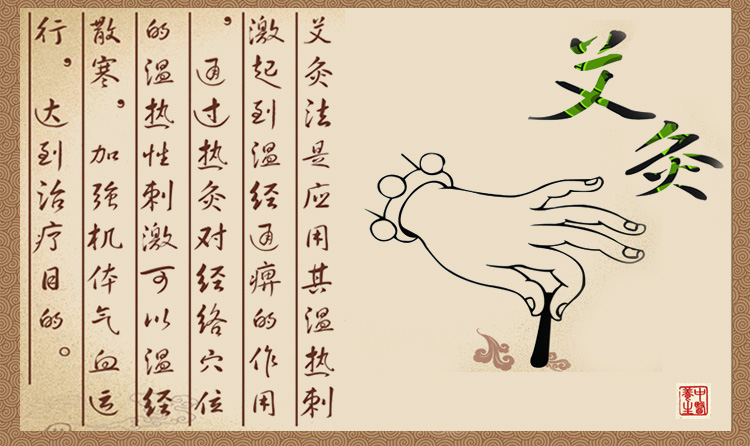 艾灸
艾灸法是应用其温热刺
激起到温经通痹的作用
，通过热灸对经络穴位
的温热性刺激可以温经
散寒，加強机体气血运
行，达到治疗目的。
中醫
養生